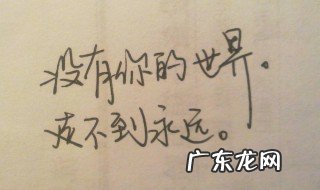 没有你的世界.
爱不到永远。
广东龙网